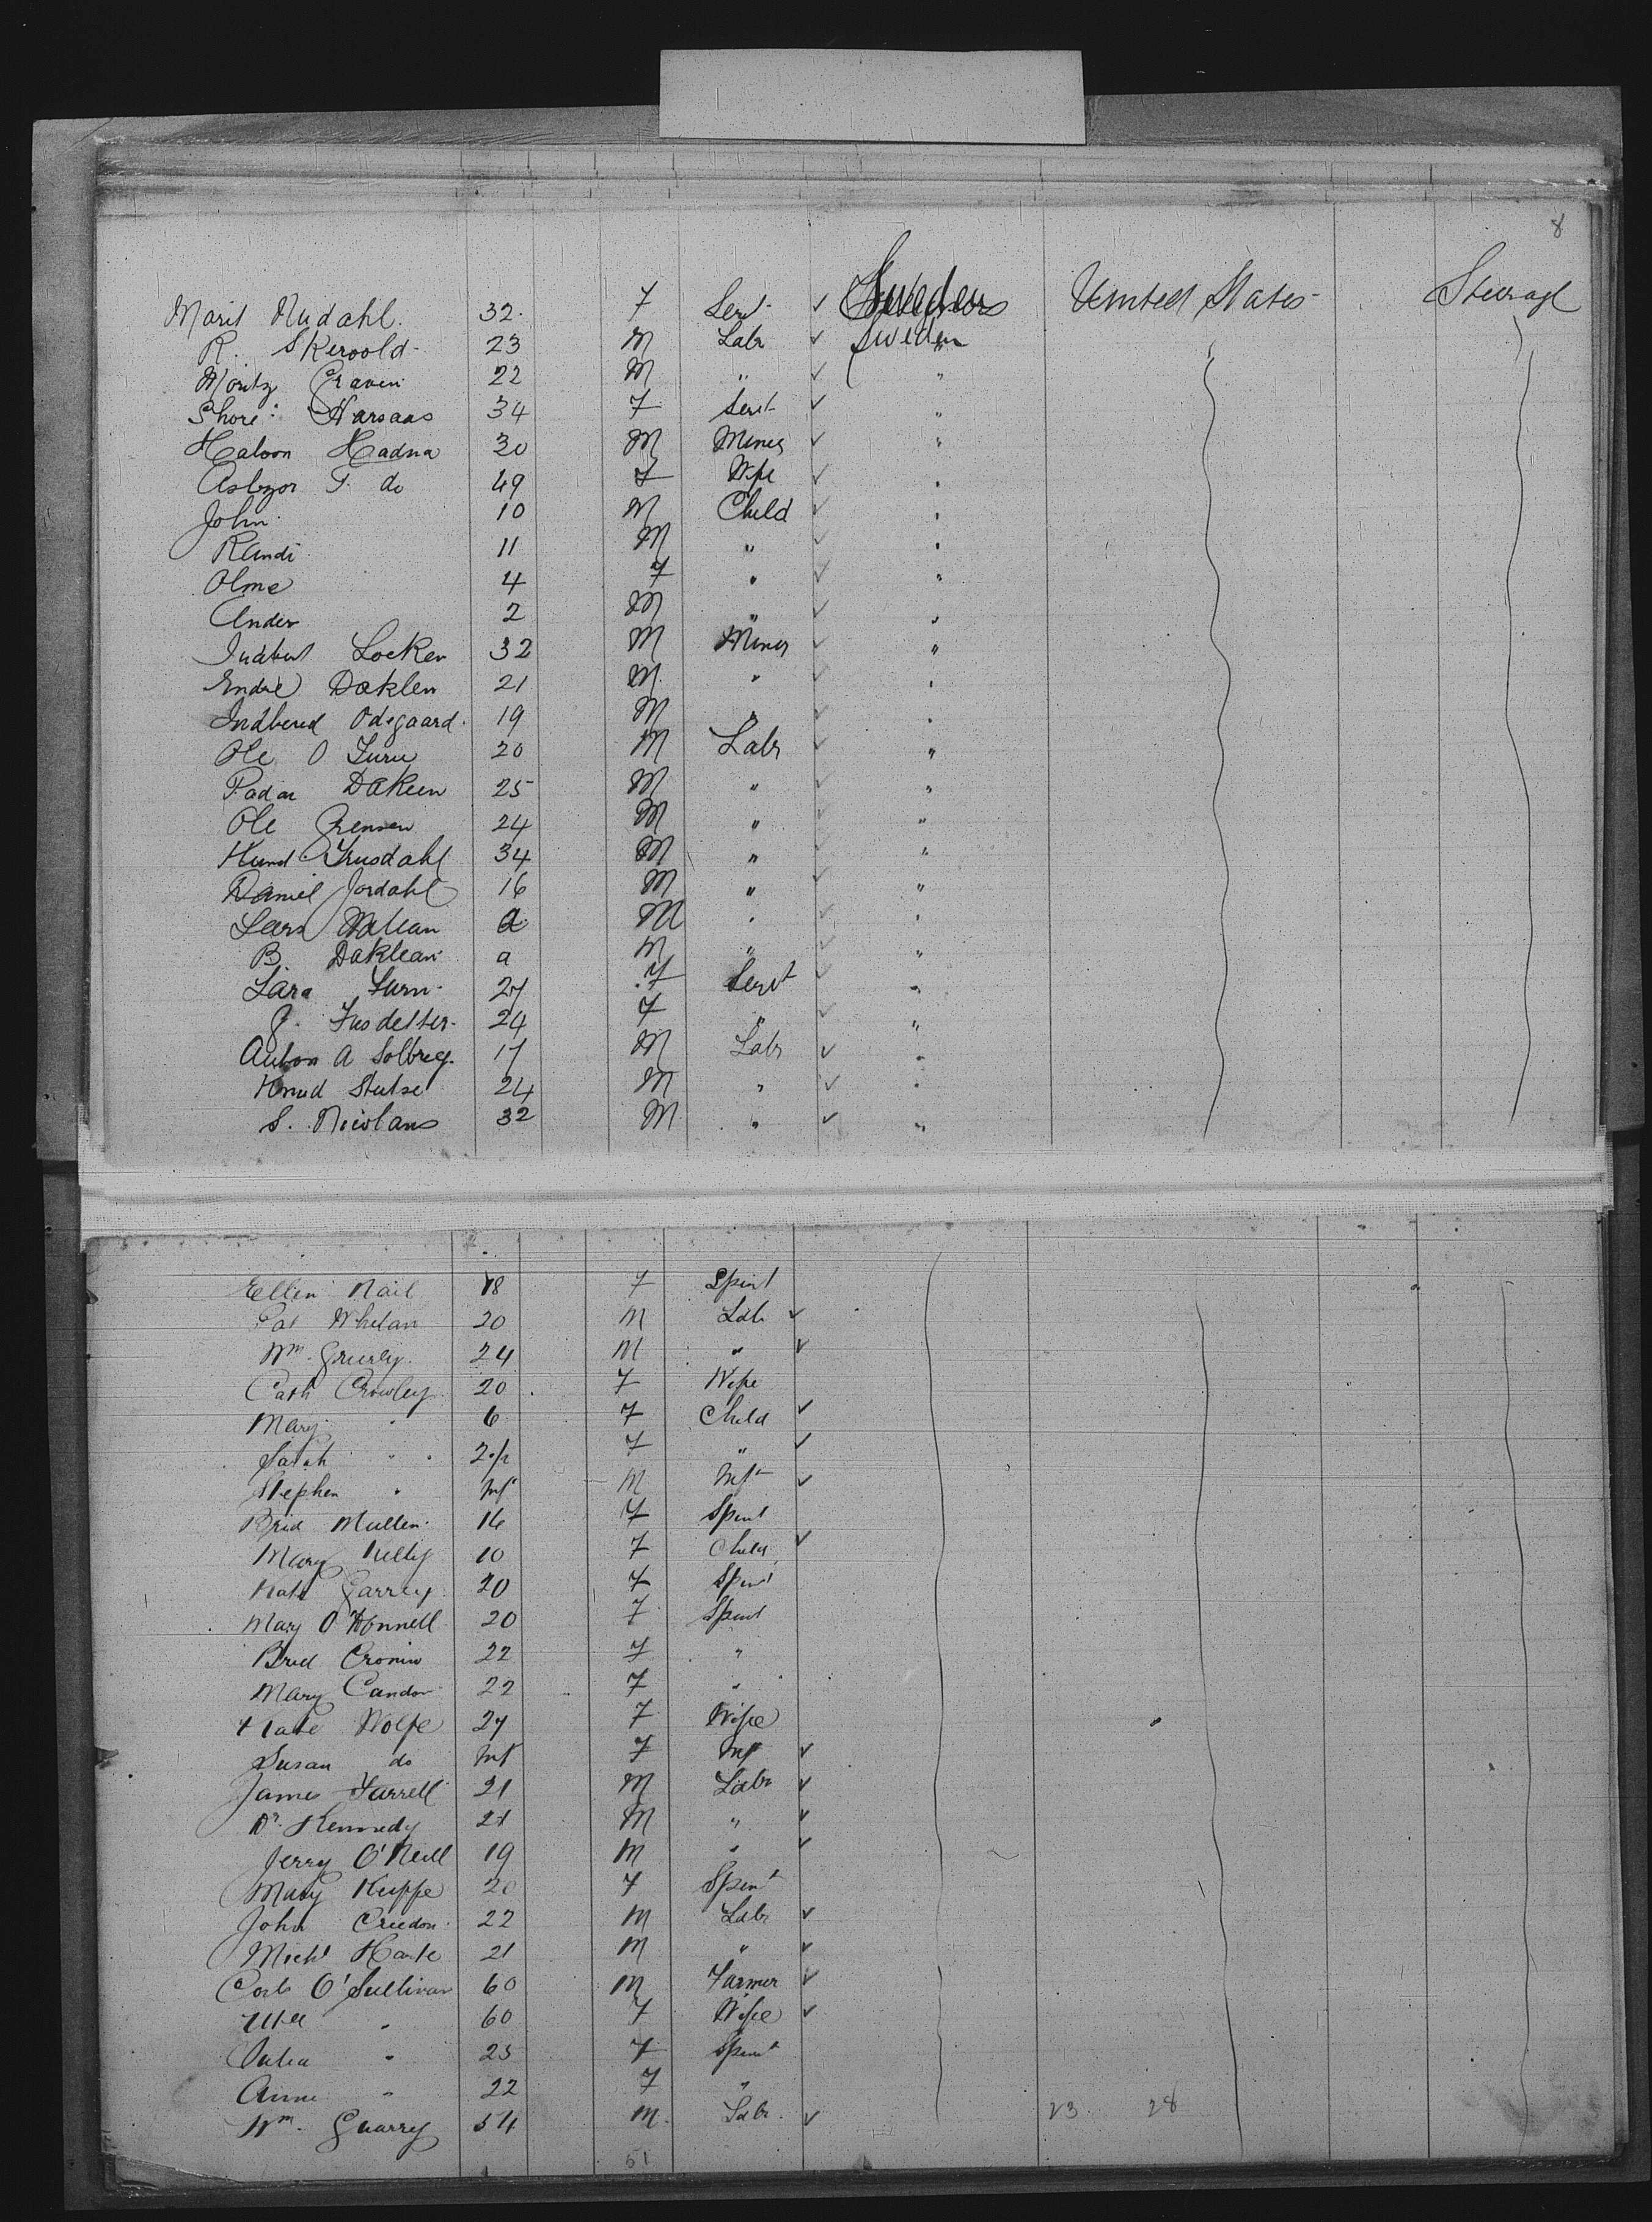 8
Marit Nudahl. 32. F Servt ✓ Sweden United States Steerage
R. Skeroold 23 M Labr ✓ Sweden "
Moritz Graven 22 M " ✓ "
Thore Harsaas 34 F Servt ✓ "
Haloon Hadna 30 M Miner ✓ "
T. do 49 F Wife ✓ "
John 10 M Child ✓ "
Randi 11 M " ✓ "
Olme 4 F " ✓ "
Ander 2 M " ✓ "
Locken 32 M Miner ✓ "
Endre Daklen 21 M " ✓ "
Indbered Odegaard. 19 M " ✓ "
Ole O 20 M Labr ✓ "
Dakeen 25 M " ✓ "
Ole 24 M " ✓ "
Trusdahl 34 M " ✓ "
Daniel Jordahl 16 M " ✓ "
Lars a M " ✓ "
B. Daklean a M " ✓ "
Lara 27 F Servt ✓ "
24 F " ✓ "
Anton A Solbreg. 17 M Labr ✓ "
Knud Stutse 24 M " ✓ "
S. Nicolaus 32 M " ✓ "
Ellen Nail 18 F Spint
Pat Whelan 20 M Lab ✓
Wm. 24 M " ✓
Cath Crowley 20 F Wife
Mary " 6 F Child ✓
Sarah " F " ✓
Stephen " Inft M Inft ✓
Brid Mullen 16 F Spint
Mary Kelly 10 F Child ✓
Kate Garrey 20 F Spint
Mary O'Donnell 20 F Spint
Brid Cronin 22 F "
Mary Candon 22 F "
Kate Wolfe 27 F Wife
Susan do Inft F Inft ✓
James Farrell 21 M Labr ✓
Kennedy 21 M " ✓
Jerry O'Neill 19 M " ✓
Mary Keeffe 20 F Spint
John Creedon 22 M Labr ✓
Michl 21 M " ✓
O'Sullivan 60 M Farmer ✓
" 60 F Wife ✓
Julia " 25 F Spint
Anne " 22 F "
Wm. Guarry 54 M. Labr. ✓ 23 28
51